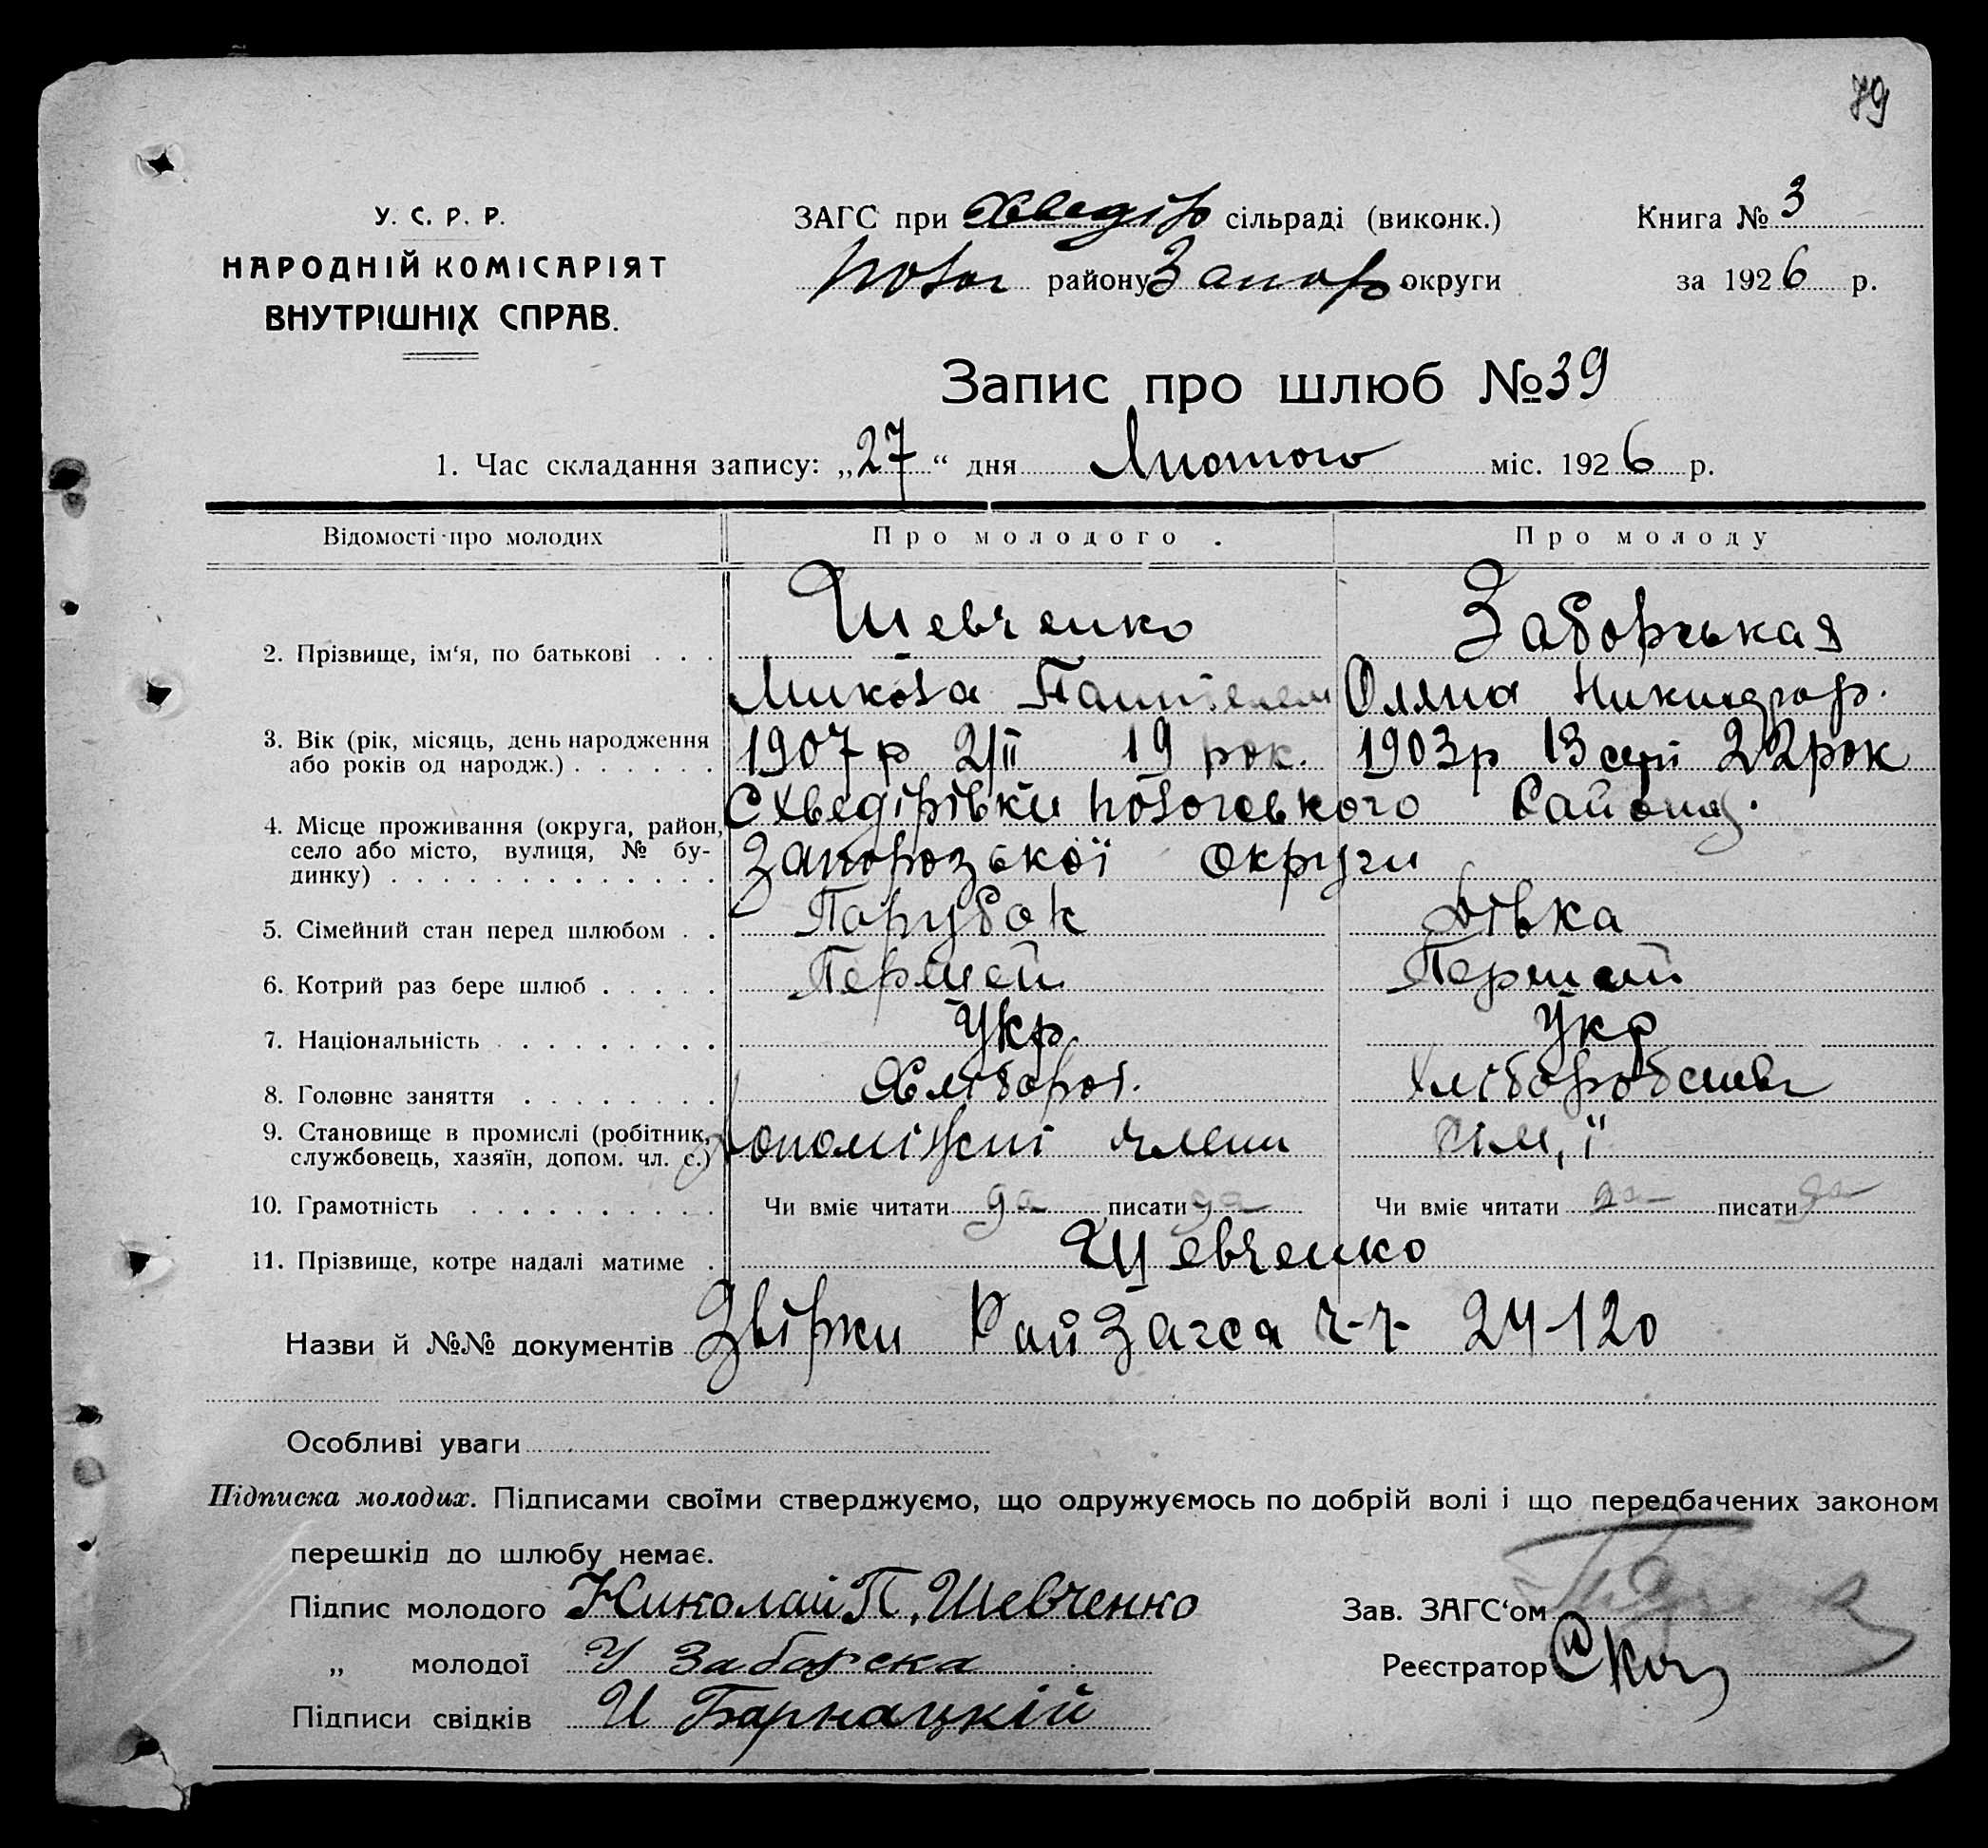 79
У. С. Р. Р.
НАРОДНІЙ КОМІСАРІЯТ
ВНУТРІШНІХ СПРАВ.
ЗАГС при Хведір сільраді (виконк.)
району Запор округи
Книга № 3
за 1926 р.
Запис про шлюб № 39
1. Час складання запису: „27“ дня Лютого міс. 1926 р.
Відомості про молодих Про молодого. Про молоду
2. Прізвище, ім‘я, по батькові . . . Шевченко Заборська я
Микола Пантелем Оляна Никандрор.
3. Вік (рік, місяць, день народження
або років од народж.) . . . . . . 1907 р 2/II 19 рок. 1903р 13 серп 22 рок
4. Місце проживання (округа, район,
село або місто, вулиця, № бу-
динку) . . . . . . . . . . . . . .
С Хведірівки пологовського Району.
Запорозької округи
5. Сімейний стан перед шлюбом . . Парубок Дівка
6. Котрий раз бере шлюб . . . . . Першей Першей
7. Національність . . . . . . . . . Укр. Укр
8. Головне заняття . . . . . . . . Хлібороб.
9. Становище в промислі (робітник,
службовець, хазяїн, допом. чл. с.) допоміжні члени сім,ї
10. Грамотність . . . . . . . . . . Чи вміє читати да писати да Чи вміє читати да писати да
11. Прізвище, котре надалі матиме . Шевченко
Назви й №№ документів Звірки РайЗагса ч-ч- 24-120
Особливі уваги
Підписка молодих. Підписами своїми стверджуємо, що одружуємось по добрій волі і що передбачених законом
перешкід до шлюбу немає.
Підпис молодого Николай П. Шевченко
Зав. ЗАГС‘ом
„ молодої У Заборска
Реєстратор
Підписи свідків И Барнацкій